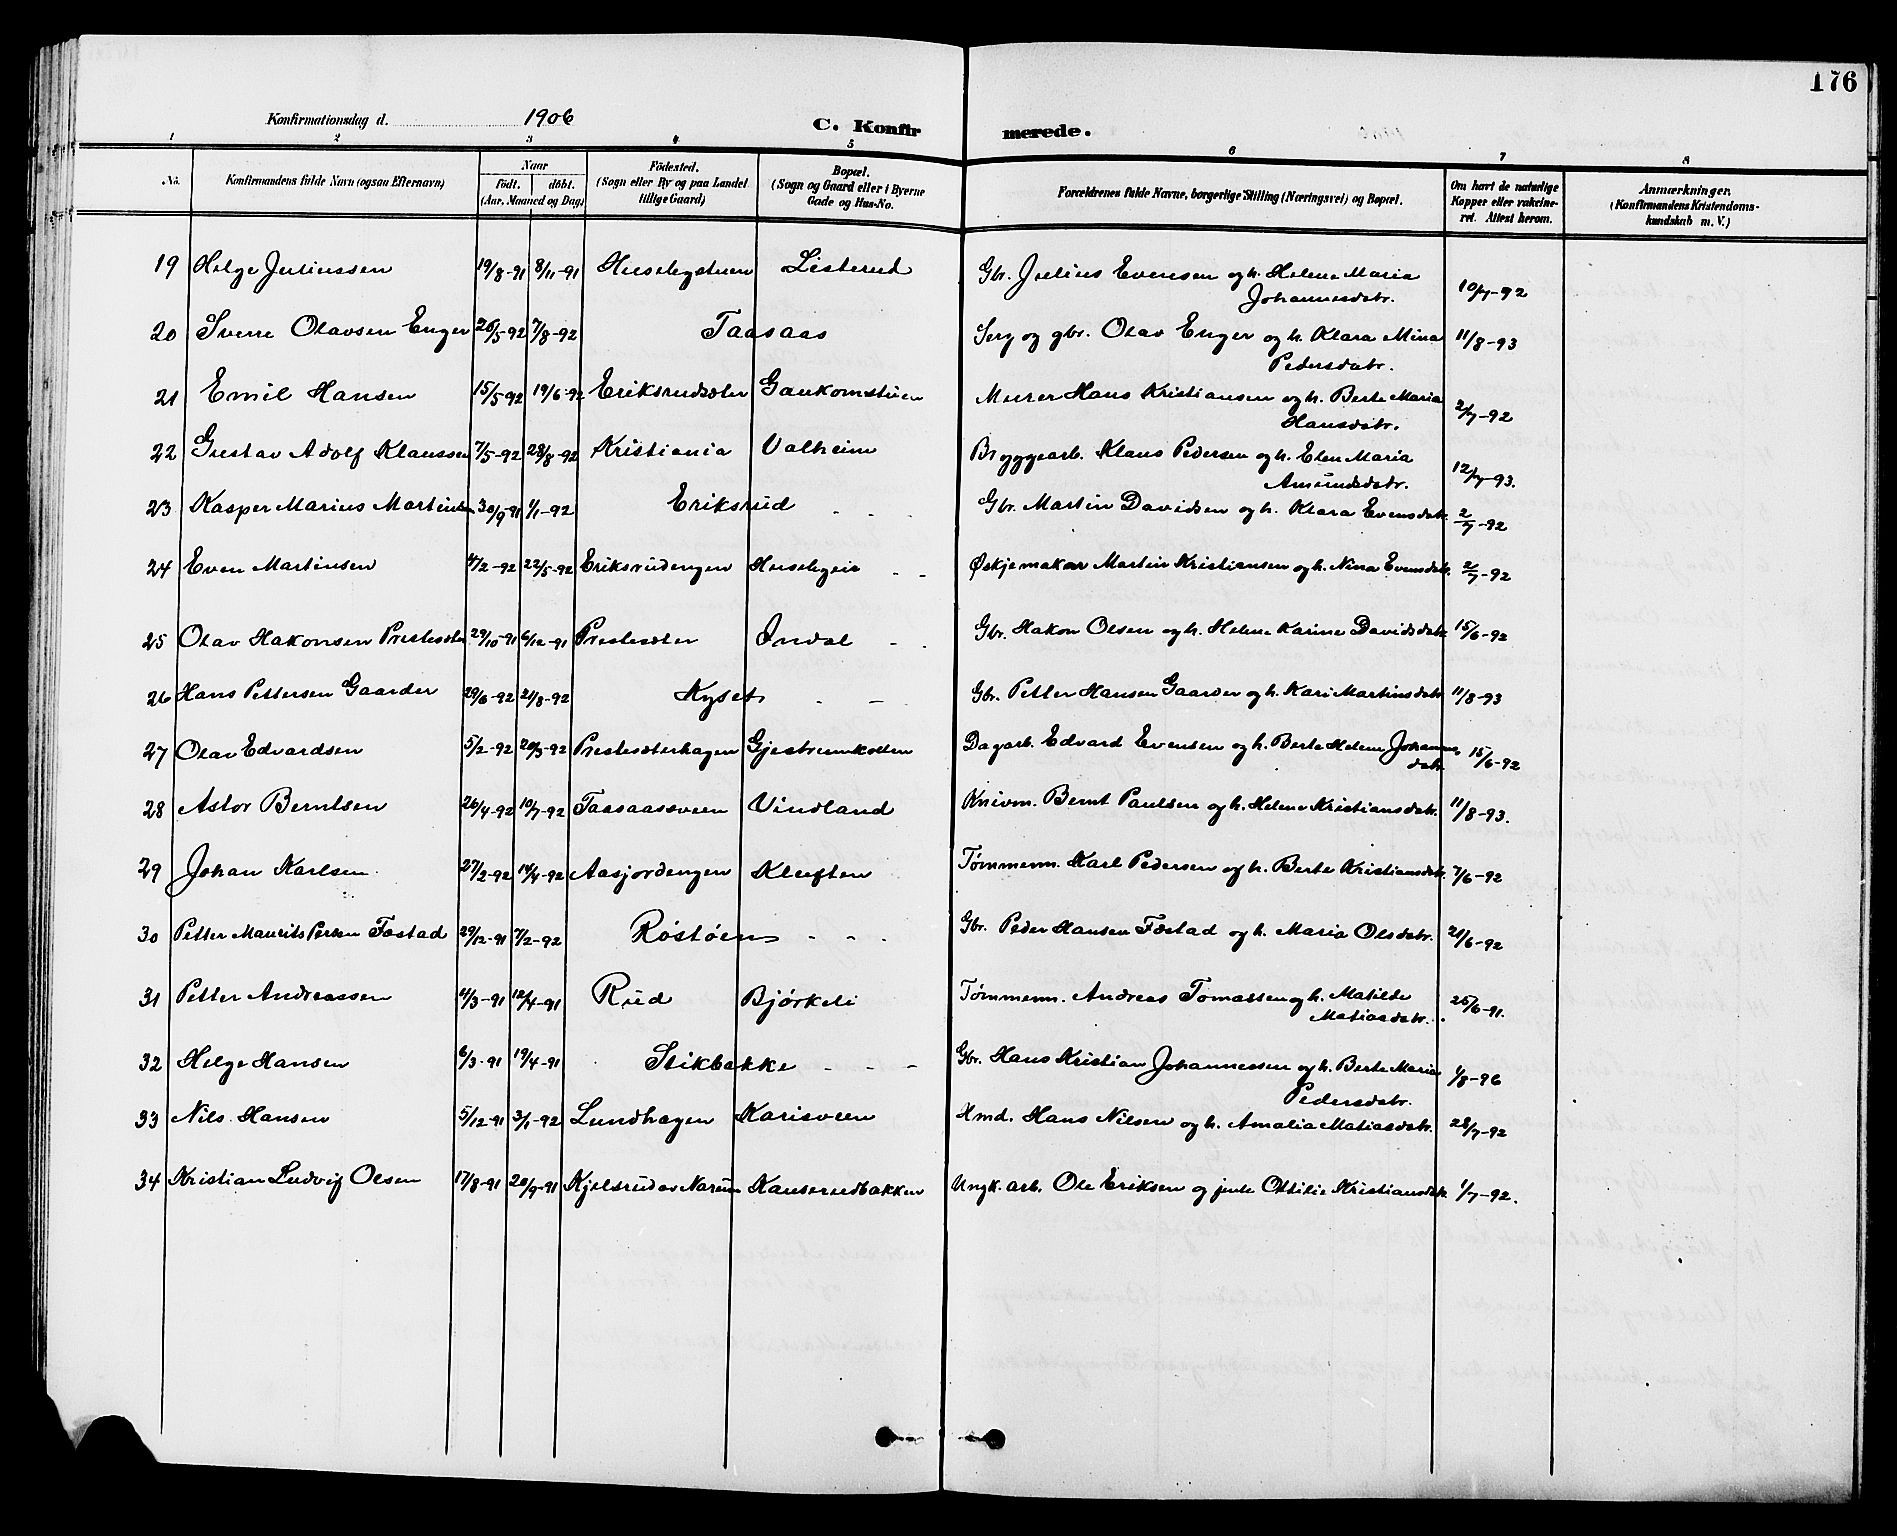 176
Konfirmationsdag d. 1906
C. Konfirmerede.
1 2 3 4 5 6 7 8
No. Konfirmandens fulde Navn (ogsaa Efternavn) Naar födt. döbt. (Aar, Maaned og Dag) Födested. (Sogn eller By og paa Landet tillige Gaard) Bopæl. (Sogn og Gaard eller i Byerne Gade og Hus-No. Forældrenes fulde Navne, borgerlige Stilling (Næringsvei) og Bopæl. Om havt de naturlige Kopper eller vakcineret. Attest herom. Anmærkninger. (Konfirmandens Kristendomskundskab m. V.)
19 Helge Juliussen 19/8-91 8/11-91 Husebystuen Listerud Gbr. Julius Evensen og h. Helene Maria Johannesdatr. 10/7-92
20 Sverre Olavsen Enger 26/5-92 7/8-92 Taasaas Serg og gbr. Olav Enger og h. Klara Mina Pedersdatr. 11/8-93
21 Emil Hansen 15/5-92 19/6-92 Eriksrudsæter Gaukomstuen Murer Hans Kristiansen og h. Berte Maria Hansdatr. 2/7-92
22 Gustav Adolf Klaussen 7/5-92 28/8-92 Kristiania Valheim Bryggearb. Klaus Pedersen og h. Elen Maria Amundsdatr. 12/7-93.
23 Kasper Marius Martinsen 30/9-91 1/1-92 Eriksrud - - - Gbr. Martin Davidsen og h. Klara Evensdatr. 2/7-92
24 Even Martinsen 4/2-92 22/5-92 Eriksrudengen Husebyeie - - Øskjemakar Martin Kristiansen og h. Nina Evensdatr. 2/7-92
25 Olav Hakonsen Prestesæter 29/10-91 6/12-91 Prestesæter Indal - - Gbr. Hakon Olsen og h. Helene Karine Davidsdatr. 15/6-92
26 Hans Pettersen Gaarder 29/6-92 21/8-92 Kyset - - Gbr. Petter Hansen Gaarder og h. Kari Martinsdatr. 11/8-93
27 Olav Edvardsen 5/2-92 20/3-92 Prestesæterhagen Gjestrumkollen Dagarb. Edvard Evensen og h. Berte Helene Johannesdatr. 15/6-92
28 Astor Berntsen 26/4-92 10/7-92 Taasaassveen Vindland Knivm. Bernt Paulsen og h. Helene Kristiansdatr. 11/8-93.
29 Johan Karlsen 27/2-92 18/4-92 Aasjordengen Kluften Tømmerm. Karl Pedersen og h. Berte Kristiansdatr. 7/6-92
30 Petter Maurits Persen Fæstad 29/12-91 7/2-92 Rostøen - - - Gbr. Peder Hansen Fæstad og h. Maria Olsdatr. 21/6-92
31 Petter Andreassen 4/3-91 12/4-91 Rud Bjørkeli Tømmerm. Andreas Tomassen og h. Matilde Matiasdatr. 25/6-91.
32 Helge Hansen 6/3-91 19/4-91 Stikbakke - - - Gbr. Hans Kristian Johannessen og h. Berte Maria Pedersdatr. 1/8-96
33 Nils Hansen 5/12-91 3/1-92 Lundhagen Karisveen Hmd. Hans Nilsen og h. Amalia Matiasdatr. 28/7-92
34 Kristian Ludvig Olsen 17/8-91 20/9-91 Kjelsrud av Narum Kauserudbakken Ungk. arb. Ole Eriksen og jente Ottilie Kristiansdatr. 1/7-92.